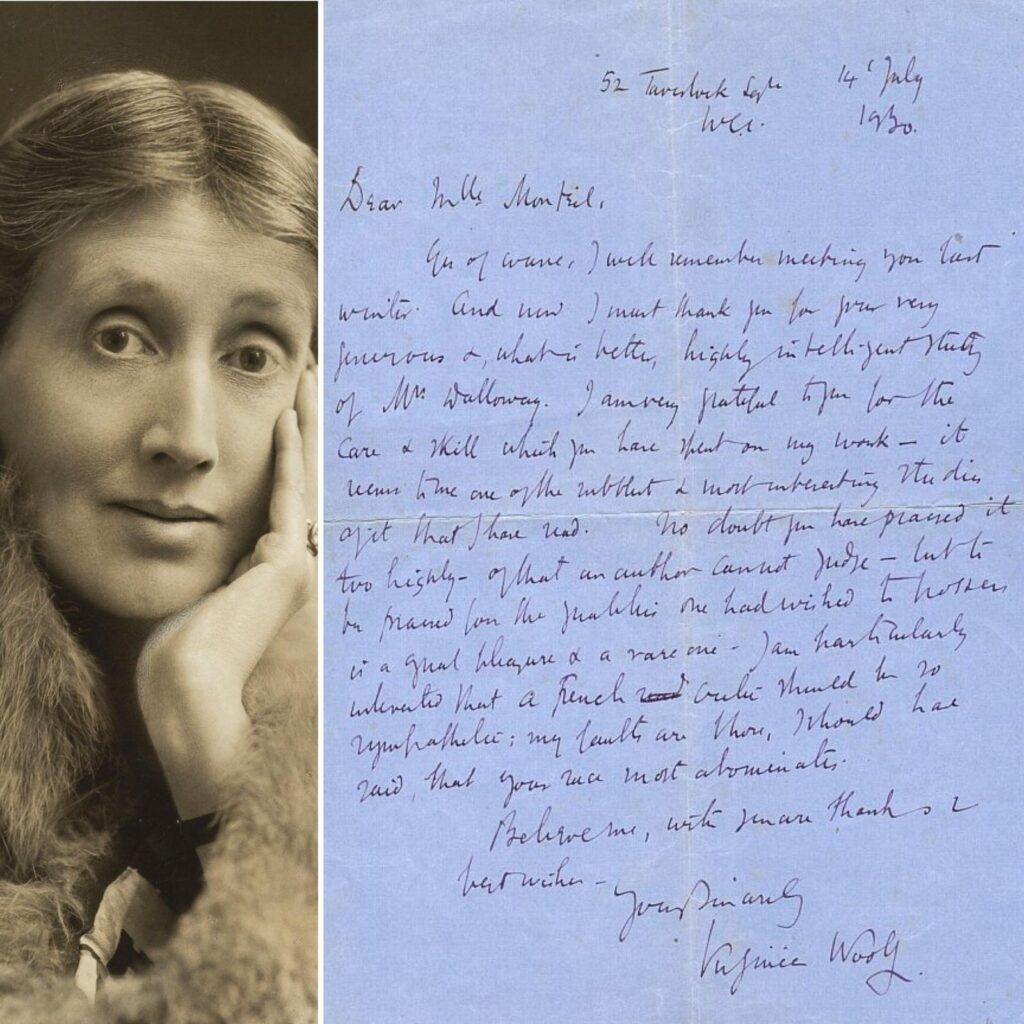 52 Tavistock Sqre 14th July
WC1. 1930.
Dear Mlle Monteil,
Yes of course, I well remember meeting you last
winter. And now I must thank you for your very
generous &, what is better, highly intelligent study
of Mrs Dalloway. I am very grateful to you for the
care & skill which you have spent on my work – it
seems to me one of the subtlest & most interesting studies
of it that I have read. No doubt you have praised it
too highly – of that an author cannot judge – but to
be praised for the qualities one had wished to possess
is a great pleasure & a rare one – I am particularly
interested that a French critic should be so
sympathetic; my faults are those, I should have
said, that your race most abominates.
Believe me, with sincere thanks &
best wishes –
Yours sincerely
Virginia Woolf.